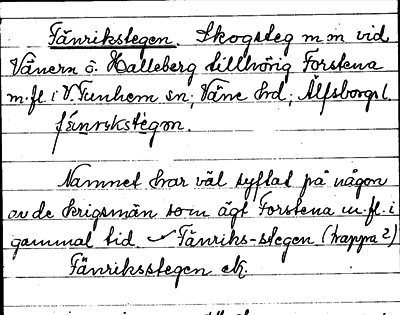 Fänrikstegen. Skogsteg m m vid
Vänern ö. Halleberg tillhörig Forstena
m.fl. i V. Tunhem sn; Väne hrd; Älfsborgs l.
fánrikstègen.
Namnet har väl syftat på någon
av de krigsmän som ägt Forstena m.fl. i
gammal tid. Fänriks-stegen (trappa?)
Fänriksstegen ek.